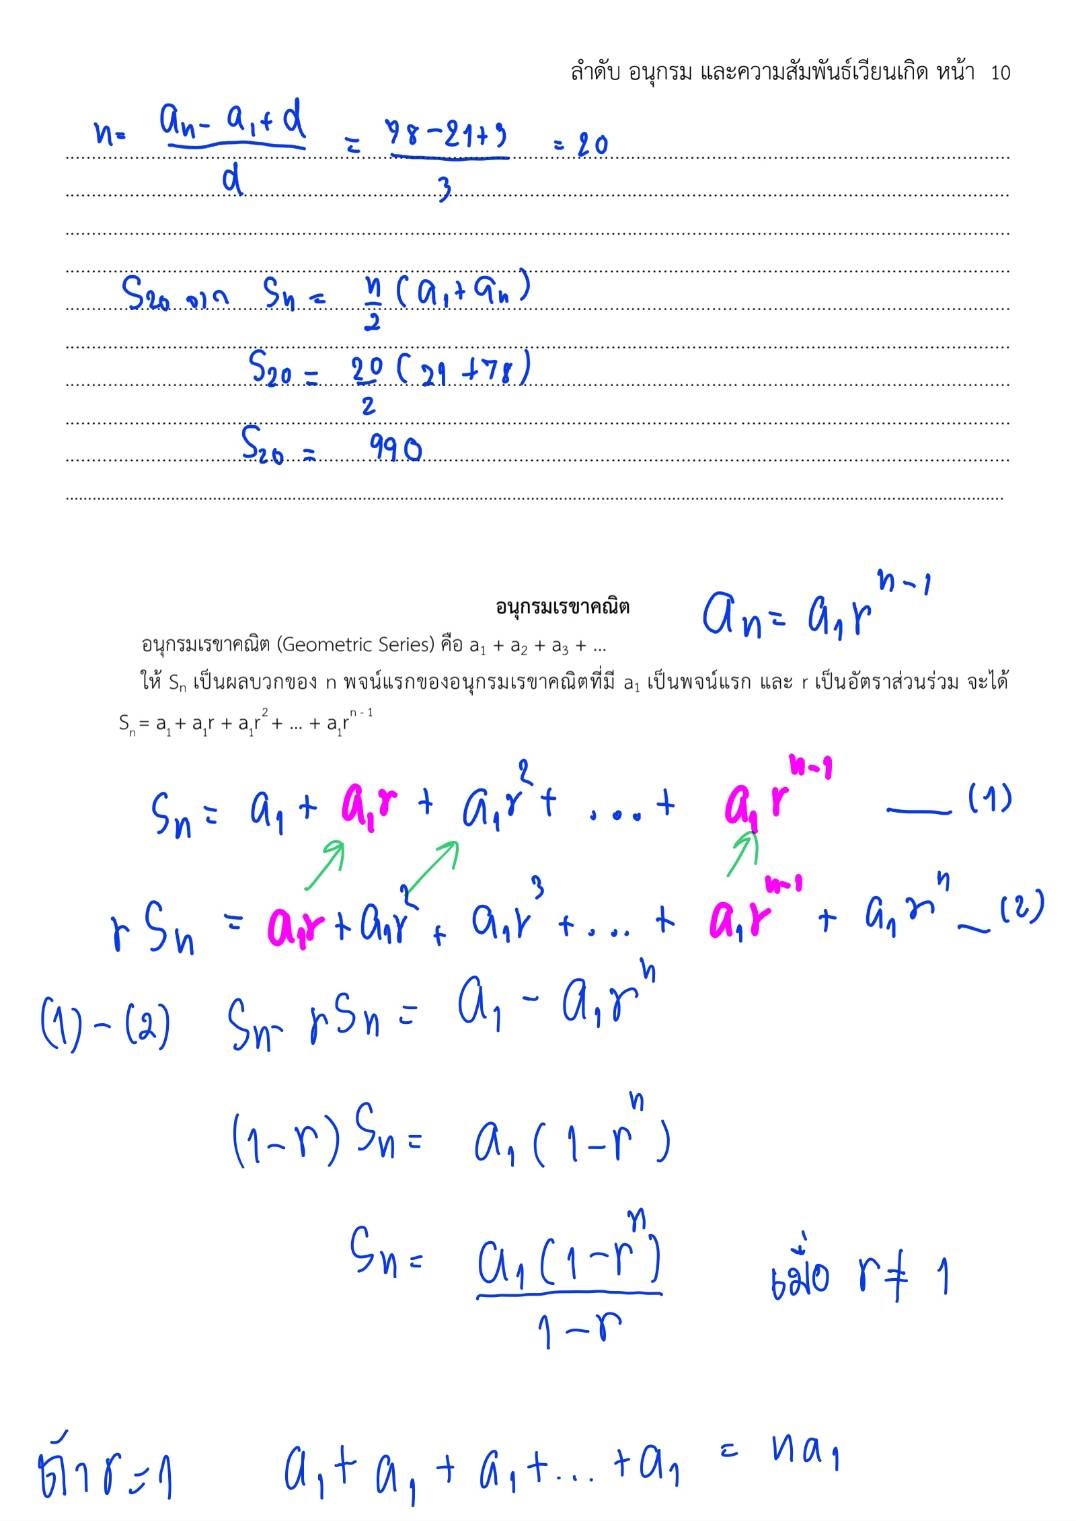 ลำดับ อนุกรม และความสัมพันธ์เวียนเกิด หน้า 10
n = (aₙ - a₁ + d)/d = (78 - 21 + 3)/3 = 20
S₂₀ จาก Sₙ = n/2 (a₁ + aₙ)
S₂₀ = 20/2 (21 + 78)
S₂₀ = 990
อนุกรมเรขาคณิต
aₙ = a₁rⁿ⁻¹
อนุกรมเรขาคณิต (Geometric Series) คือ a₁ + a₂ + a₃ + ...
ให้ Sₙ เป็นผลบวกของ n พจน์แรกของอนุกรมเรขาคณิตที่มี a₁ เป็นพจน์แรก และ r เป็นอัตราส่วนร่วม จะได้
Sₙ = a₁ + a₁r + a₁r² + ... + a₁rⁿ⁻¹
Sₙ = a₁ + a₁r + a₁r² + ... + a₁rⁿ⁻¹ — (1)
rSₙ = a₁r + a₁r² + a₁r³ + ... + a₁rⁿ⁻¹ + a₁rⁿ — (2)
(1) - (2) Sₙ - rSₙ = a₁ - a₁rⁿ
(1-r) Sₙ = a₁(1-rⁿ)
Sₙ = a₁(1-rⁿ)/(1-r) เมื่อ r ≠ 1
ถ้า r = 1 a₁ + a₁ + a₁ + ... + a₁ = na₁